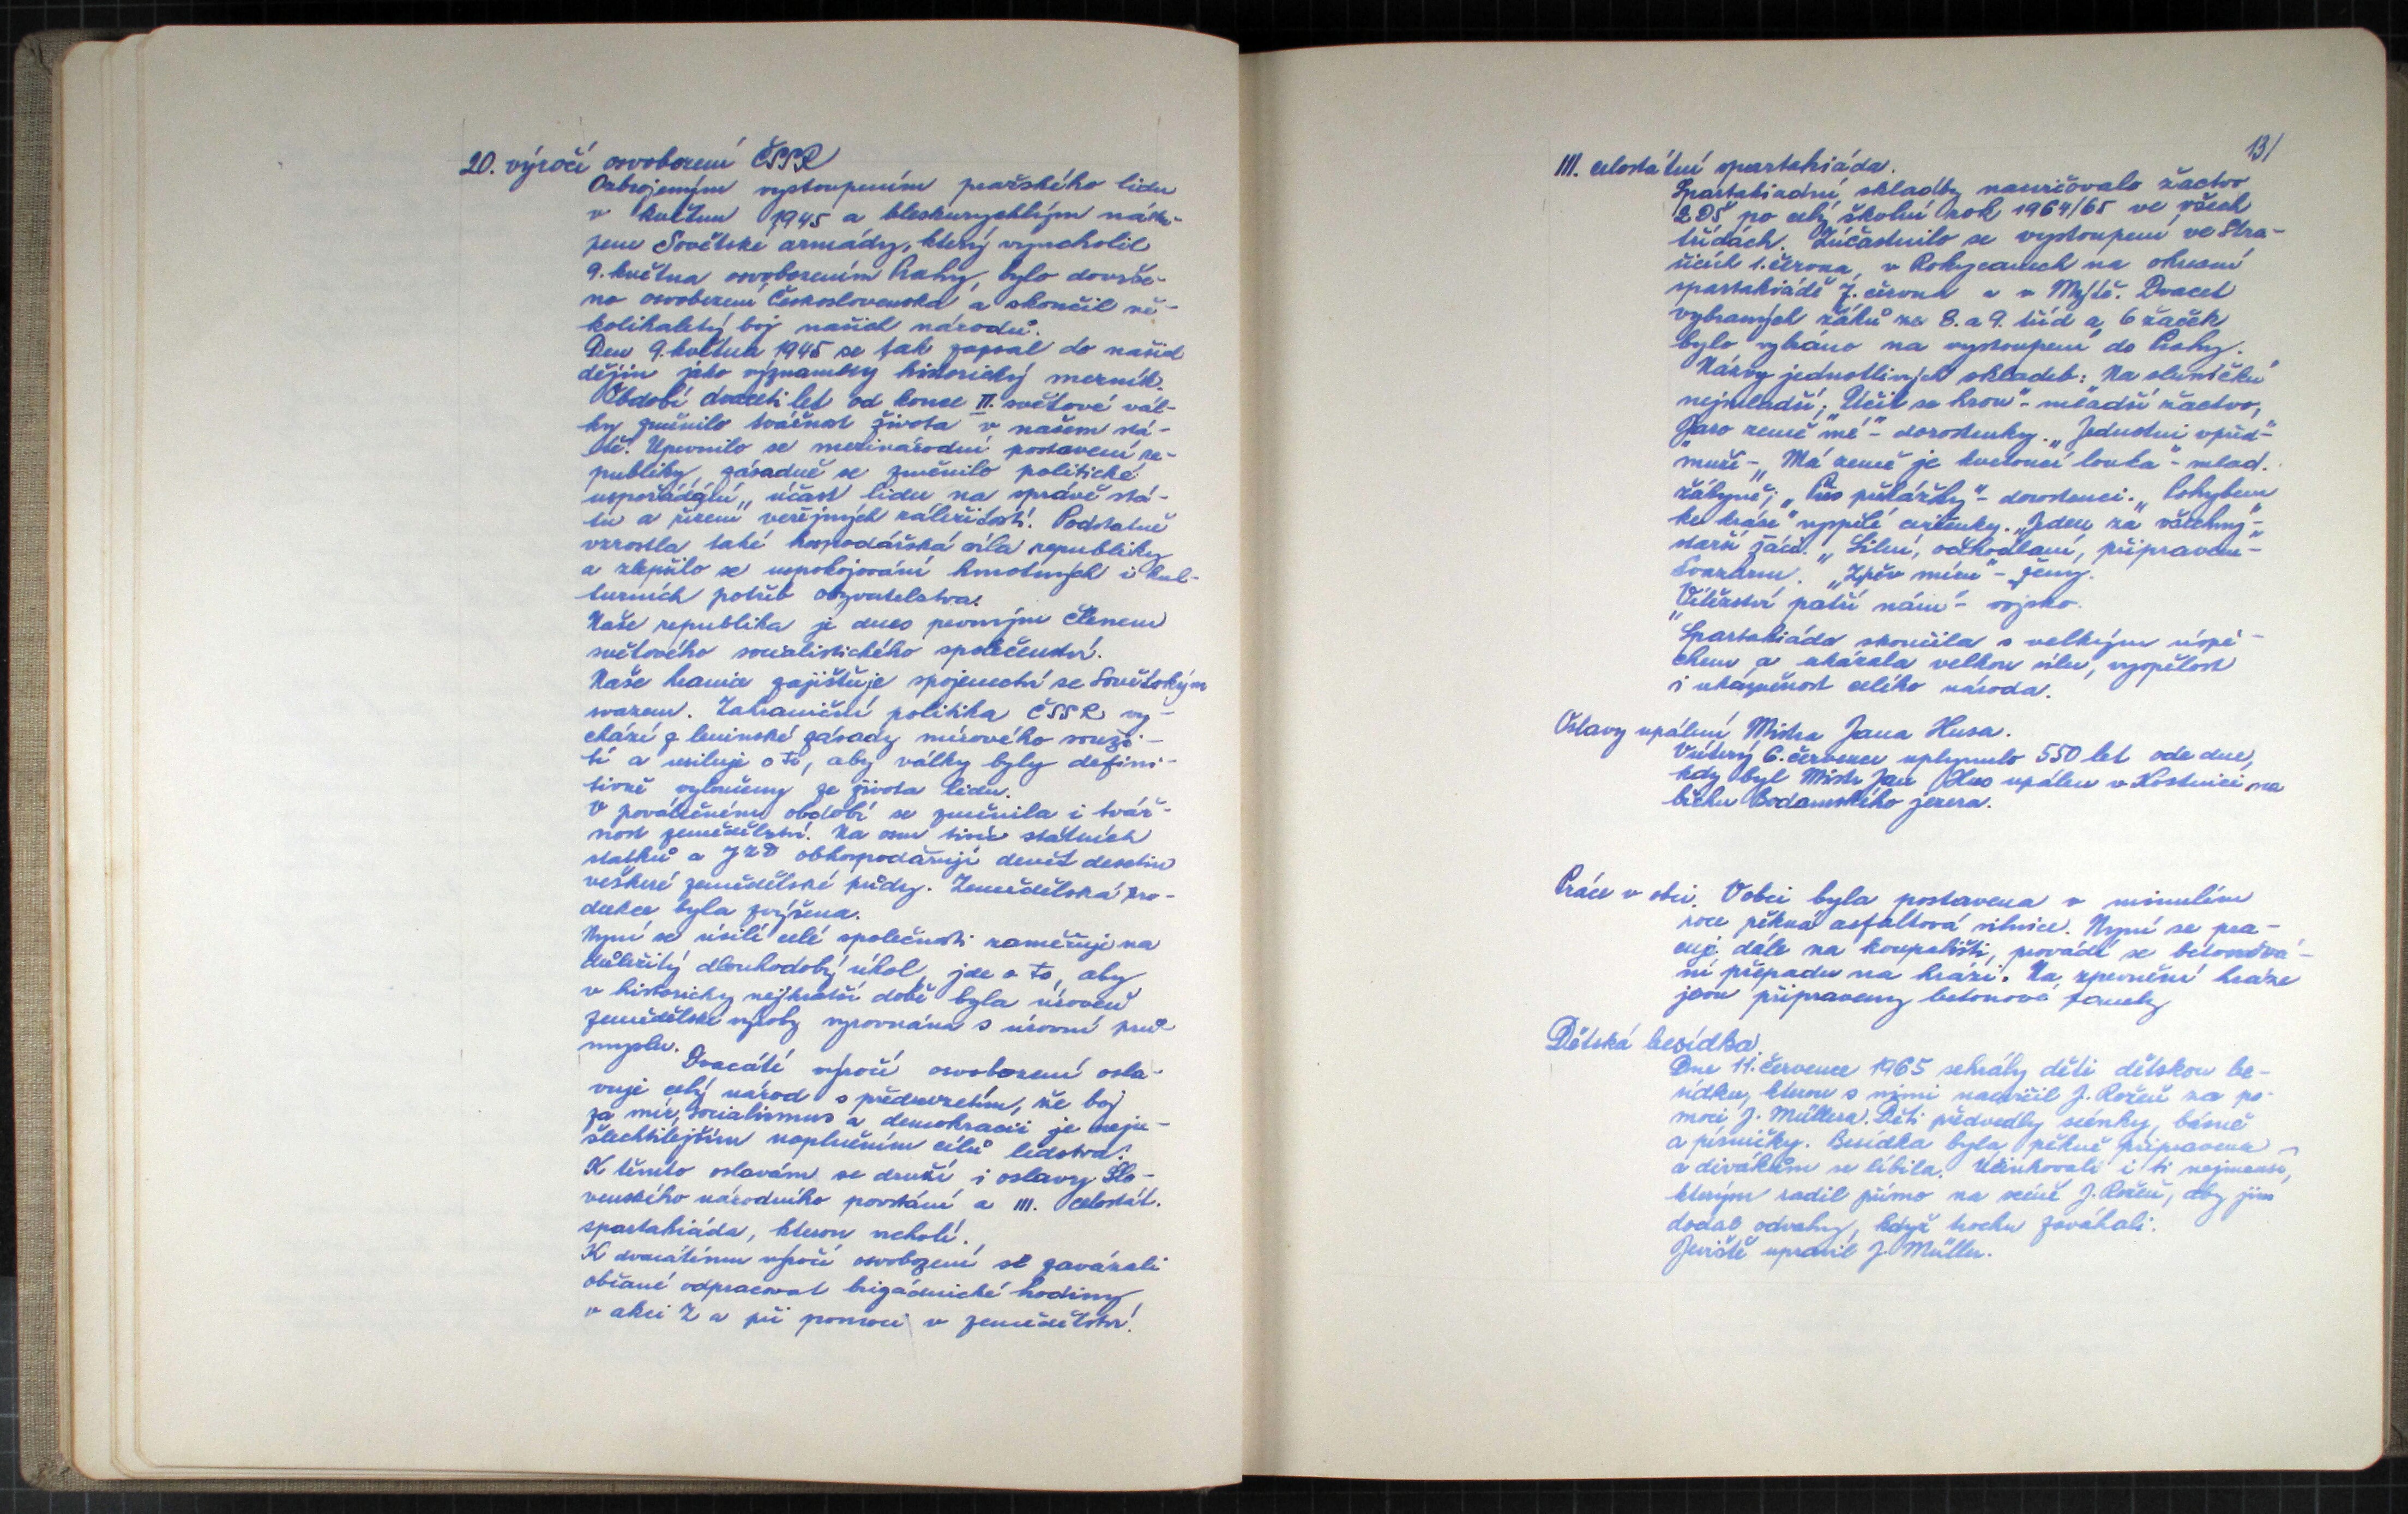 20. výročí osvobození ČSSR
Ozbrojeným vystoupením pražského lidu
v květnu 1945 a bleskurychlým nástu-
pem Sovětské armády, který vyvrcholil
9. května osvobozením Prahy, bylo dovrše-
no osvobození Československa a skončil ně-
kolikaletý boj našich národů.
Den 9. května 1945 se tak zapsal do našich
dějin jako významný historický mezník.
Období dvaceti let od konce II. světové vál-
ky změnilo tvářnost života v našem stá-
tě. Upevnilo se mezinárodní postavení re-
publiky, zásadně se změnilo politické
uspořádání, účast lidu na správě stá-
tu a řízení veřejných záležitostí. Podstatně
vzrostla také hospodářská síla republiky
a zlepšilo se uspokojování hmotných i kul-
turních potřeb obyvatelstva.
Naše republika je dnes pevným členem
světového socialistického společenství.
Naše hranice zajišťuje spojenectví se Sovětským
svazem. Zahraniční politika ČSSR vy-
chází z leninské zásady mírového souži-
tí a usiluje o to, aby války byly defini-
tivně vyloučeny ze života lidu.
V poválečném období se změnila i tvář-
nost zemědělství. Na osm tisíc státních
statků a JZD obhospodařují devět desetin
veškeré zemědělské půdy. Zemědělská pro-
dukce byla zvýšena.
Nyní se úsilí celé společnosti zaměřuje na
důležitý dlouhodobý úkol, jde o to, aby
v historicky nejkratší době byla úroveň
zemědělské výroby vyrovnána s úrovní prů-
myslu.
Dvacáté výročí osvobození osla-
vuje celý národ s předsevzetím, že boj
za mír, socialismus a demokracii je neju-
šlechtilejším naplněním cílů lidstva.
K těmto oslavám se druží i oslavy Slo-
venského národního povstání a III. celostát.
spartakiáda, kterou vrcholí.
K dvacátému výročí osvobození se zavázali
občané odpracovat brigádnické hodiny
v akci Z a při pomoci v zemědělství.
131
III. celostátní spartakiáda.
Spartakiadní skladby nacvičovalo žactvo
ZDŠ po celý školní rok 1964/65 ve všech
třídách. Zúčastnilo se vystoupení ve Stra-
šicích 1. června, v Rokycanech na okresní
spartakiádě 7. června a v Mýtě. Dvacet
vybraných žáků ze 8. a 9. tříd a 6 žaček
bylo vybráno na vystoupení do Prahy.
Názvy jednotlivých skladeb: „Na sluníčku"
nejmladší; „Učit se hrou" - mladší žactvo,
„Jaro země mé" - dorostenky. „Jednotni vpřed"-
muži - „Má země je kvetoucí louka" - mlad.
žákyně; „Přes překážky" - dorostenci. „Pohybem
ke kráse" vyspělé cvičenky. „Jeden za všechny"-
starší žáci. „Silní, odhodlaní, připraveni"-
Svazarm. „Zpěv míru" - ženy.
„Vítězství patří nám" - vojsko.
Spartakiáda skončila s velkým úspě-
chem a ukázala velkou sílu, vyspělost
i ukázněnost celého národa.
Oslavy upálení Mistra Jana Husa.
V úterý 6. července uplynulo 550 let ode dne,
kdy byl Mistr Jan Hus upálen v Kostnici na
břehu Bodamského jezera.
Práce v obci. V obci byla postavena v minulém
roce pěkná asfaltová silnice. Nyní se pra-
cuje dále na koupališti, provádí se betonová-
ní přepadu na hrázi. Na zpevnění hráze
jsou připraveny betonové panely
Dětská besídka
Dne 11. července 1965 sehrály děti dětskou be-
sídku, kterou s nimi nacvičil J. Rožeň za po-
moci J. Müllera. Děti předvedly scénky, básně
a písničky. Besídka byla pěkně připravena
a divákům se líbila. Účinkovali i ti nejmenší,
kterým radil přímo na scéně J. Rožeň, aby jim
dodal odvahy, když trochu zaváhali.
Jeviště upravil J. Müller.